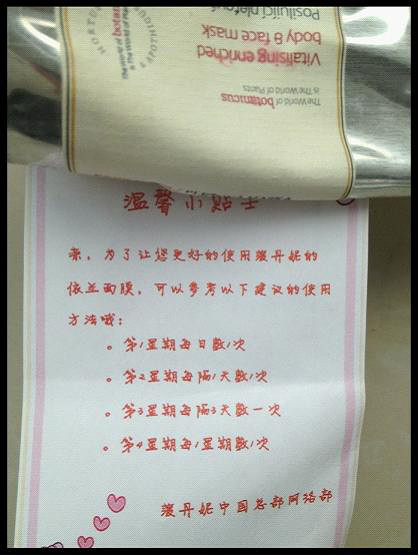 The World of botanicus
is The World of Plants
Vitalising enriched
body & face mask
温馨小贴士
亲，为了让您更好的使用菠丹妮的
依兰面膜，可以参考以下建议的使用
方法哦：
。第1星期每日敷1次
。第2星期每隔1天敷1次
。第3星期每隔3天敷一次
。第4星期每1星期敷1次
菠丹妮中国总部网络部